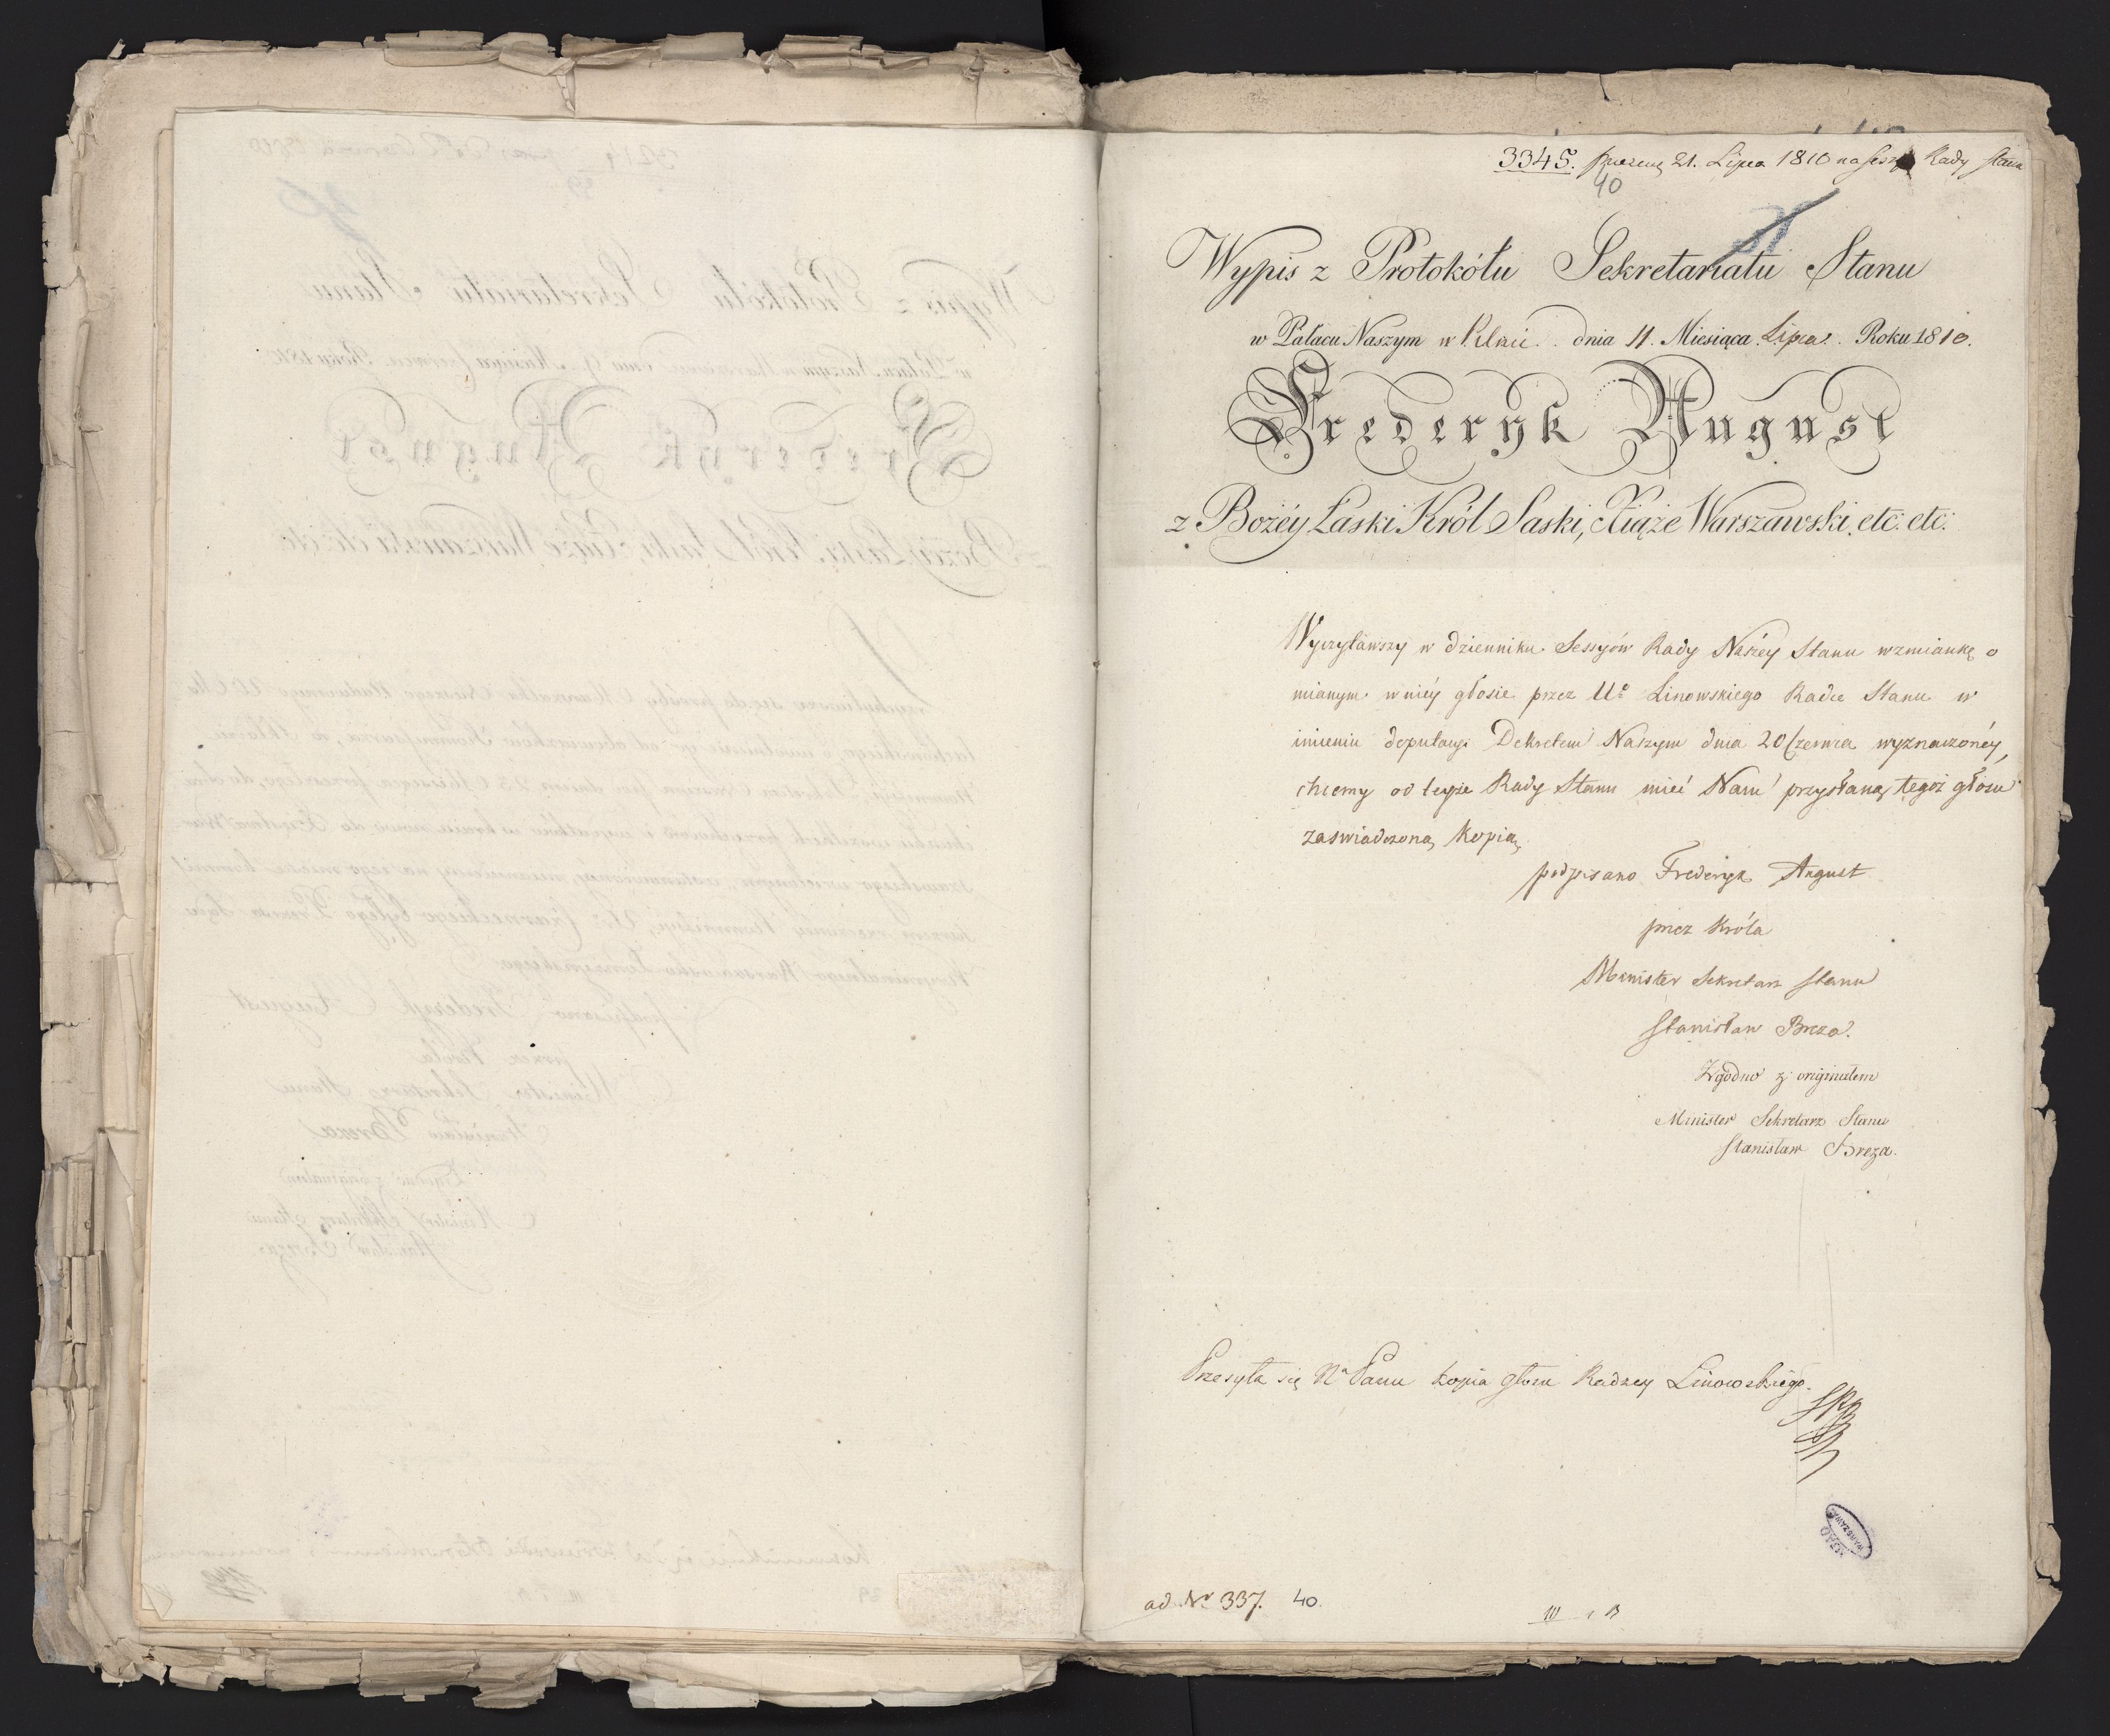 3345. 21. Lipca 1810 na Rady Stanu
40
31
Wypis z Protokółu Sekretariatu Stanu
w Pałacu Naszym w Pilnic. dnia 11. Miesiąca Lipca. Roku 1810.
Frederyk August
z Bożéy Łaski Król Saski, Xiąże Warszawski, etc: etc:
Wyczytawszy w dzienniku Sessyów Rady Naszéy Stanu wzmiankę o
mianym w niéy głosie przez Uo Linowskiego Radcę Stanu w
imieniu deputacyi Dekretem Naszym dnia 20 Czerwca wyznaczonéy,
chcemy od teyże Rady Stanu mieć Nam przysłaną tegoż głosu
zaswiadczoną Kopią.
podpisano Frederyk August
przez Króla
Minister Sekretarz Stanu
Stanisław Breza.
Zgodno z originałem
Minister Sekretarz Stanu
Stanisław Breza.
Przesyła się Nu Panu kopia głosu Radzcy Linowskiego.
WARSZAWA
ad Nr 337. 40.